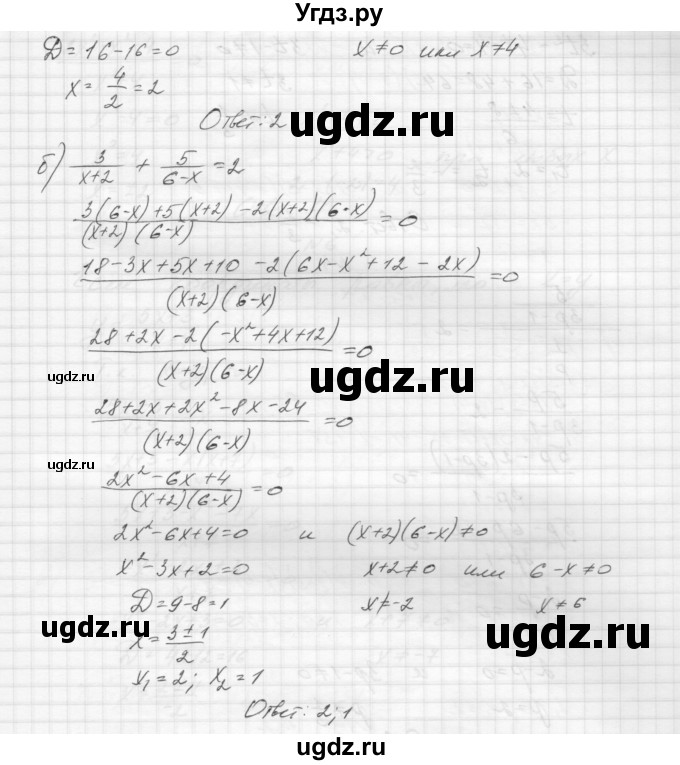 Угдз.ру
Д = 16-16 = 0    x ≠ 0 или x ≠ 4
x = 4/2 = 2
Ответ: 2
ugdz.ru
б) 3/(x+2) + 5/(6-x) = 2
(3(6-x)+5(x+2) -2(x+2)(6-x))/((x+2)(6-x)) = 0
(18-3x+5x+10 -2(6x-x²+12-2x))/((x+2)(6-x)) = 0
(28+2x-2(-x²+4x+12))/((x+2)(6-x)) = 0
ugdz.ru ugdz.ru
(28+2x+2x²-8x-24)/((x+2)(6-x)) = 0
ugdz.ru
(2x²-6x+4)/((x+2)(6-x)) = 0
2x²-6x+4=0 и (x+2)(6-x)≠0
x²-3x+2=0    x+2≠0 или 6-x≠0
Д = 9-8 = 1    x≠-2    x≠6
ugdz.ru ugdz.ru
x = (3±1)/2
x₁ = 2; x₂ = 1
Ответ: 2; 1
ugdz.ru